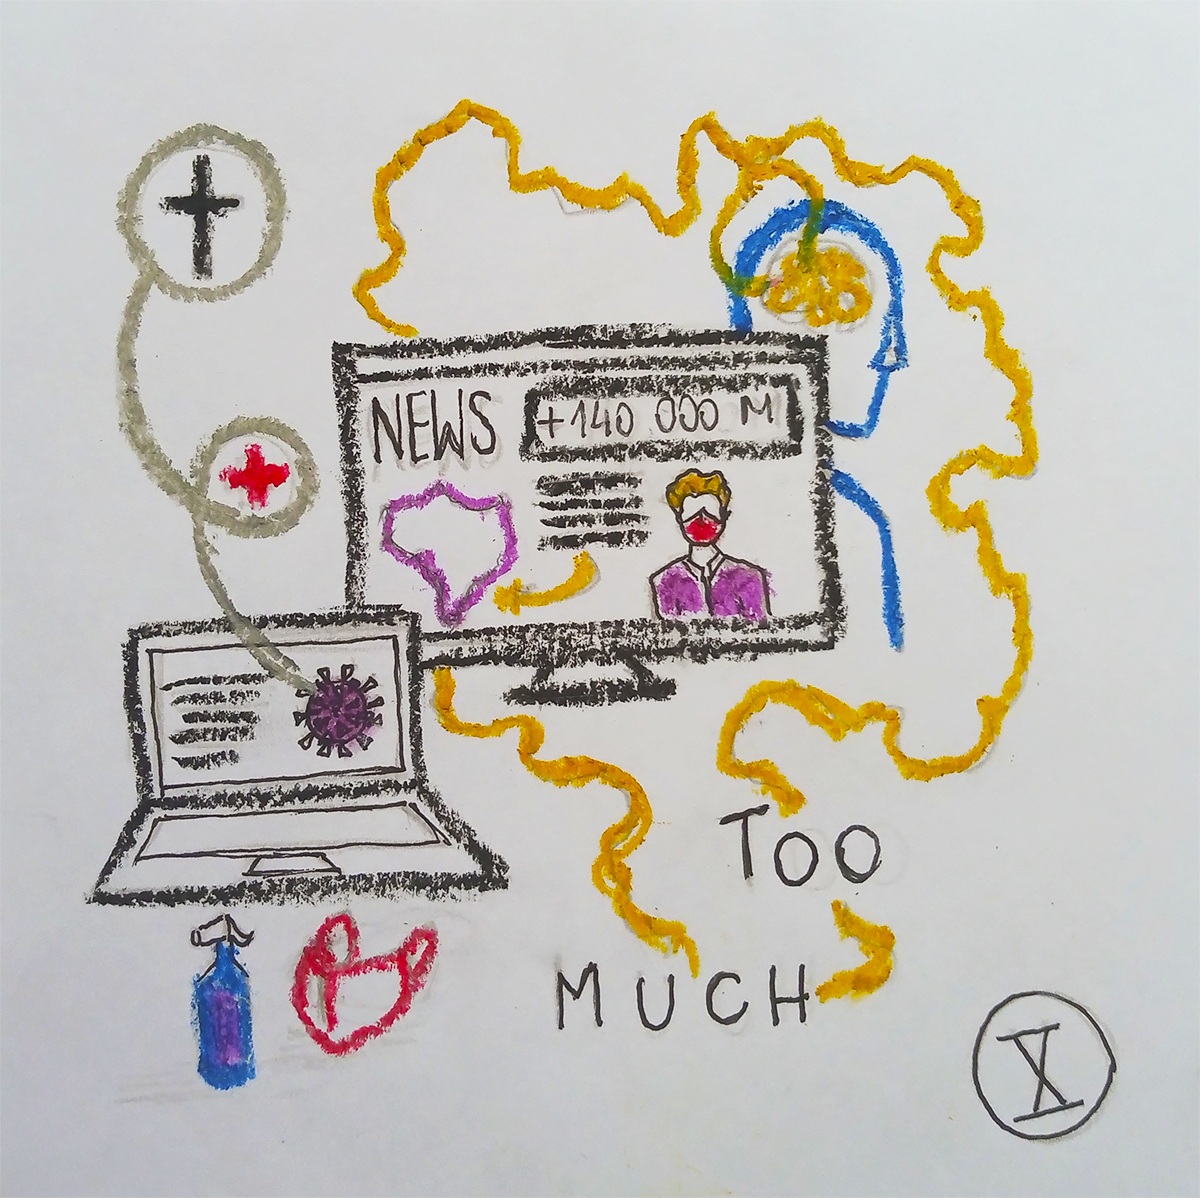 NEWS
+140 000 M
TOO
MUCH
X